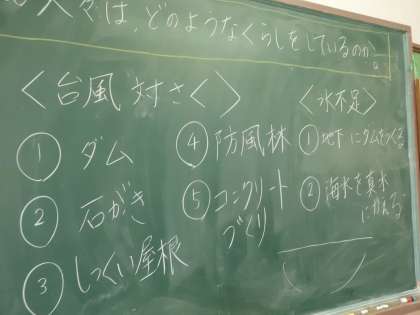 人々は、どのようなくらしをしているのか。
＜台風対さく＞
① ダム
② 石がき
③ しっくい屋根
④ 防風林
⑤ コンクリート
づくり
＜水不足＞
① 地下にダムをつくる
② 海水を真水
にかえる